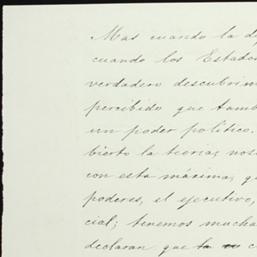 Mas cuando la d
cuando los Estado
verdadero descubrim
percibido que tamb
un poder politico.
bierto la teoria, nos
con esta máxima, q
poderes, el ejecutivo,
cial; tenemos mucha
declaran que la c